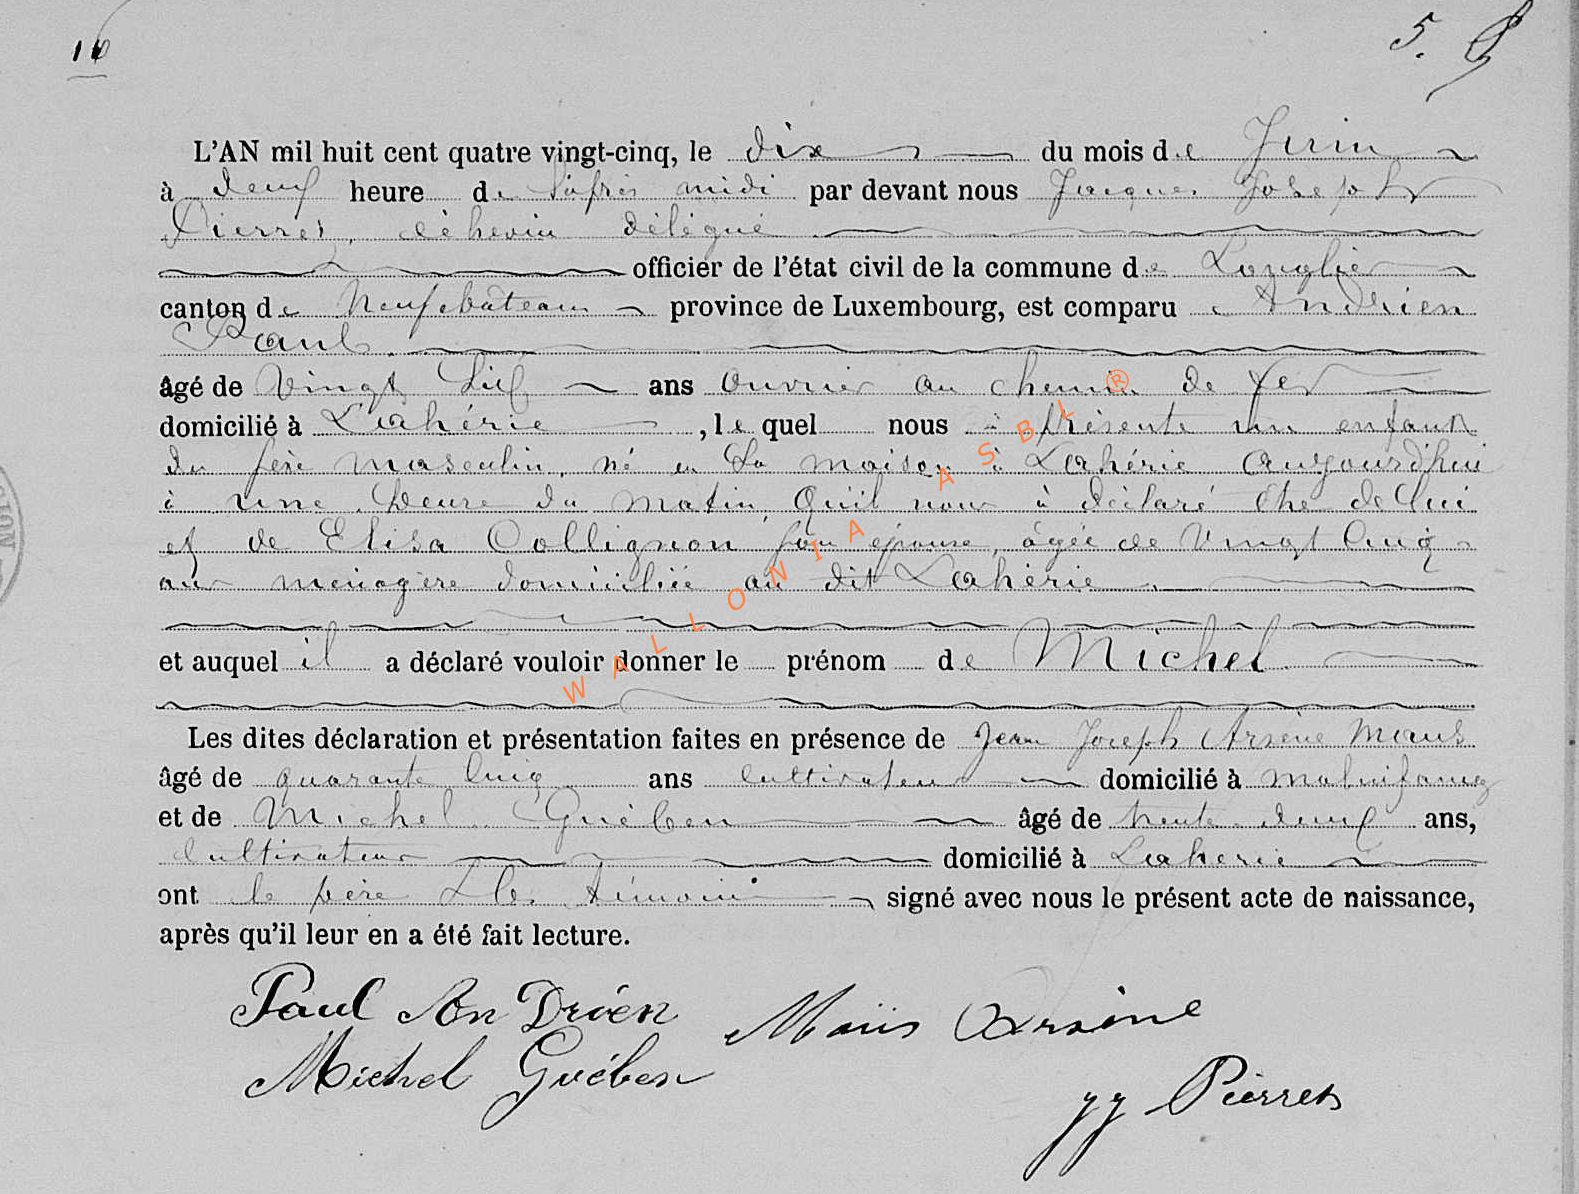 16
5.
L'AN mil huit cent quatre vingt-cinq, le dix du mois de Juin
à deux heure de l'après midi par devant nous Jacques Joseph
Pierret, échevin délégué
officier de l'état civil de la commune de Longlier
canton de Neufchâteau province de Luxembourg, est comparu Andrien
Paul
âgé de Vingt ans ouvrier au chemin de fer
domicilié à Lahérie, le quel nous à présenté un enfant
du sexe masculin, né en sa maison à Lahérie aujourd'hui
à une heure du matin, qu'il nous à déclaré être de lui
et de Elisa Collignon son épouse, âgée de Vingt Cinq
ans ménagère domiciliée au dit Lahérie
et auquel il a déclaré vouloir donner le prénom de Michel
Les dites déclaration et présentation faites en présence de Jean Joseph Arsène Maus
âgé de quarante Cinq ans Cultivateur domicilié à
et de Michel Guében âgé de trente deux ans,
Cultivateur domicilié à Laherie
ont le père & les témoins signé avec nous le présent acte de naissance,
après qu'il leur en a été fait lecture.
Paul AnDrien Maus Arsène
Michel Guében
JJ Pierret
WALLONIA ASBL ®